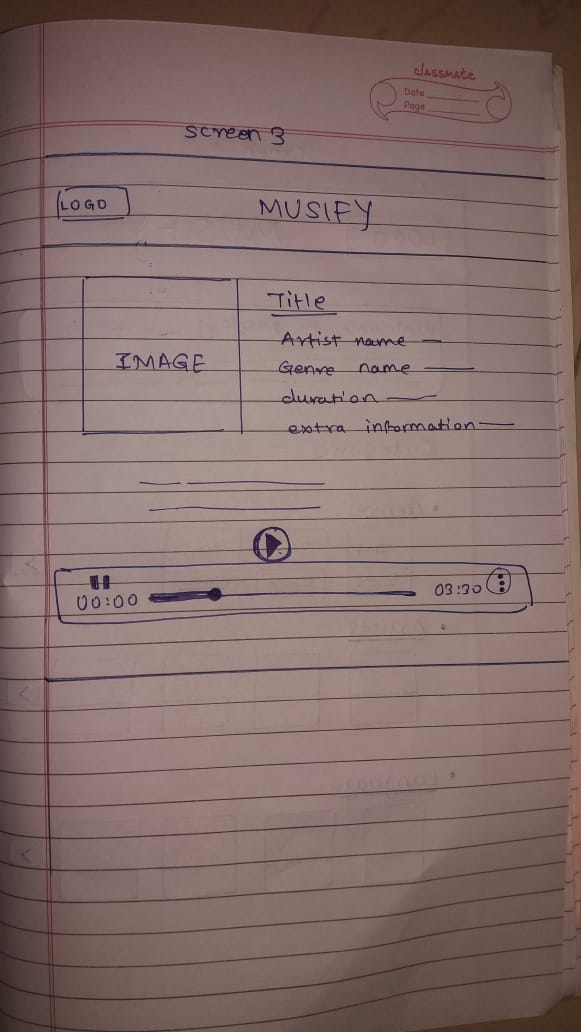 classmate
Date
Page
Screen 3
LOGO
MUSIFY
IMAGE
Title
Artist name
Genre name
duration
extra information
00:00
03:30